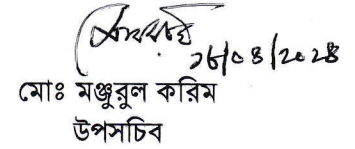 ২৮/০৪/২০২৪
মোঃ মঞ্জুরুল করিম
উপসচিব